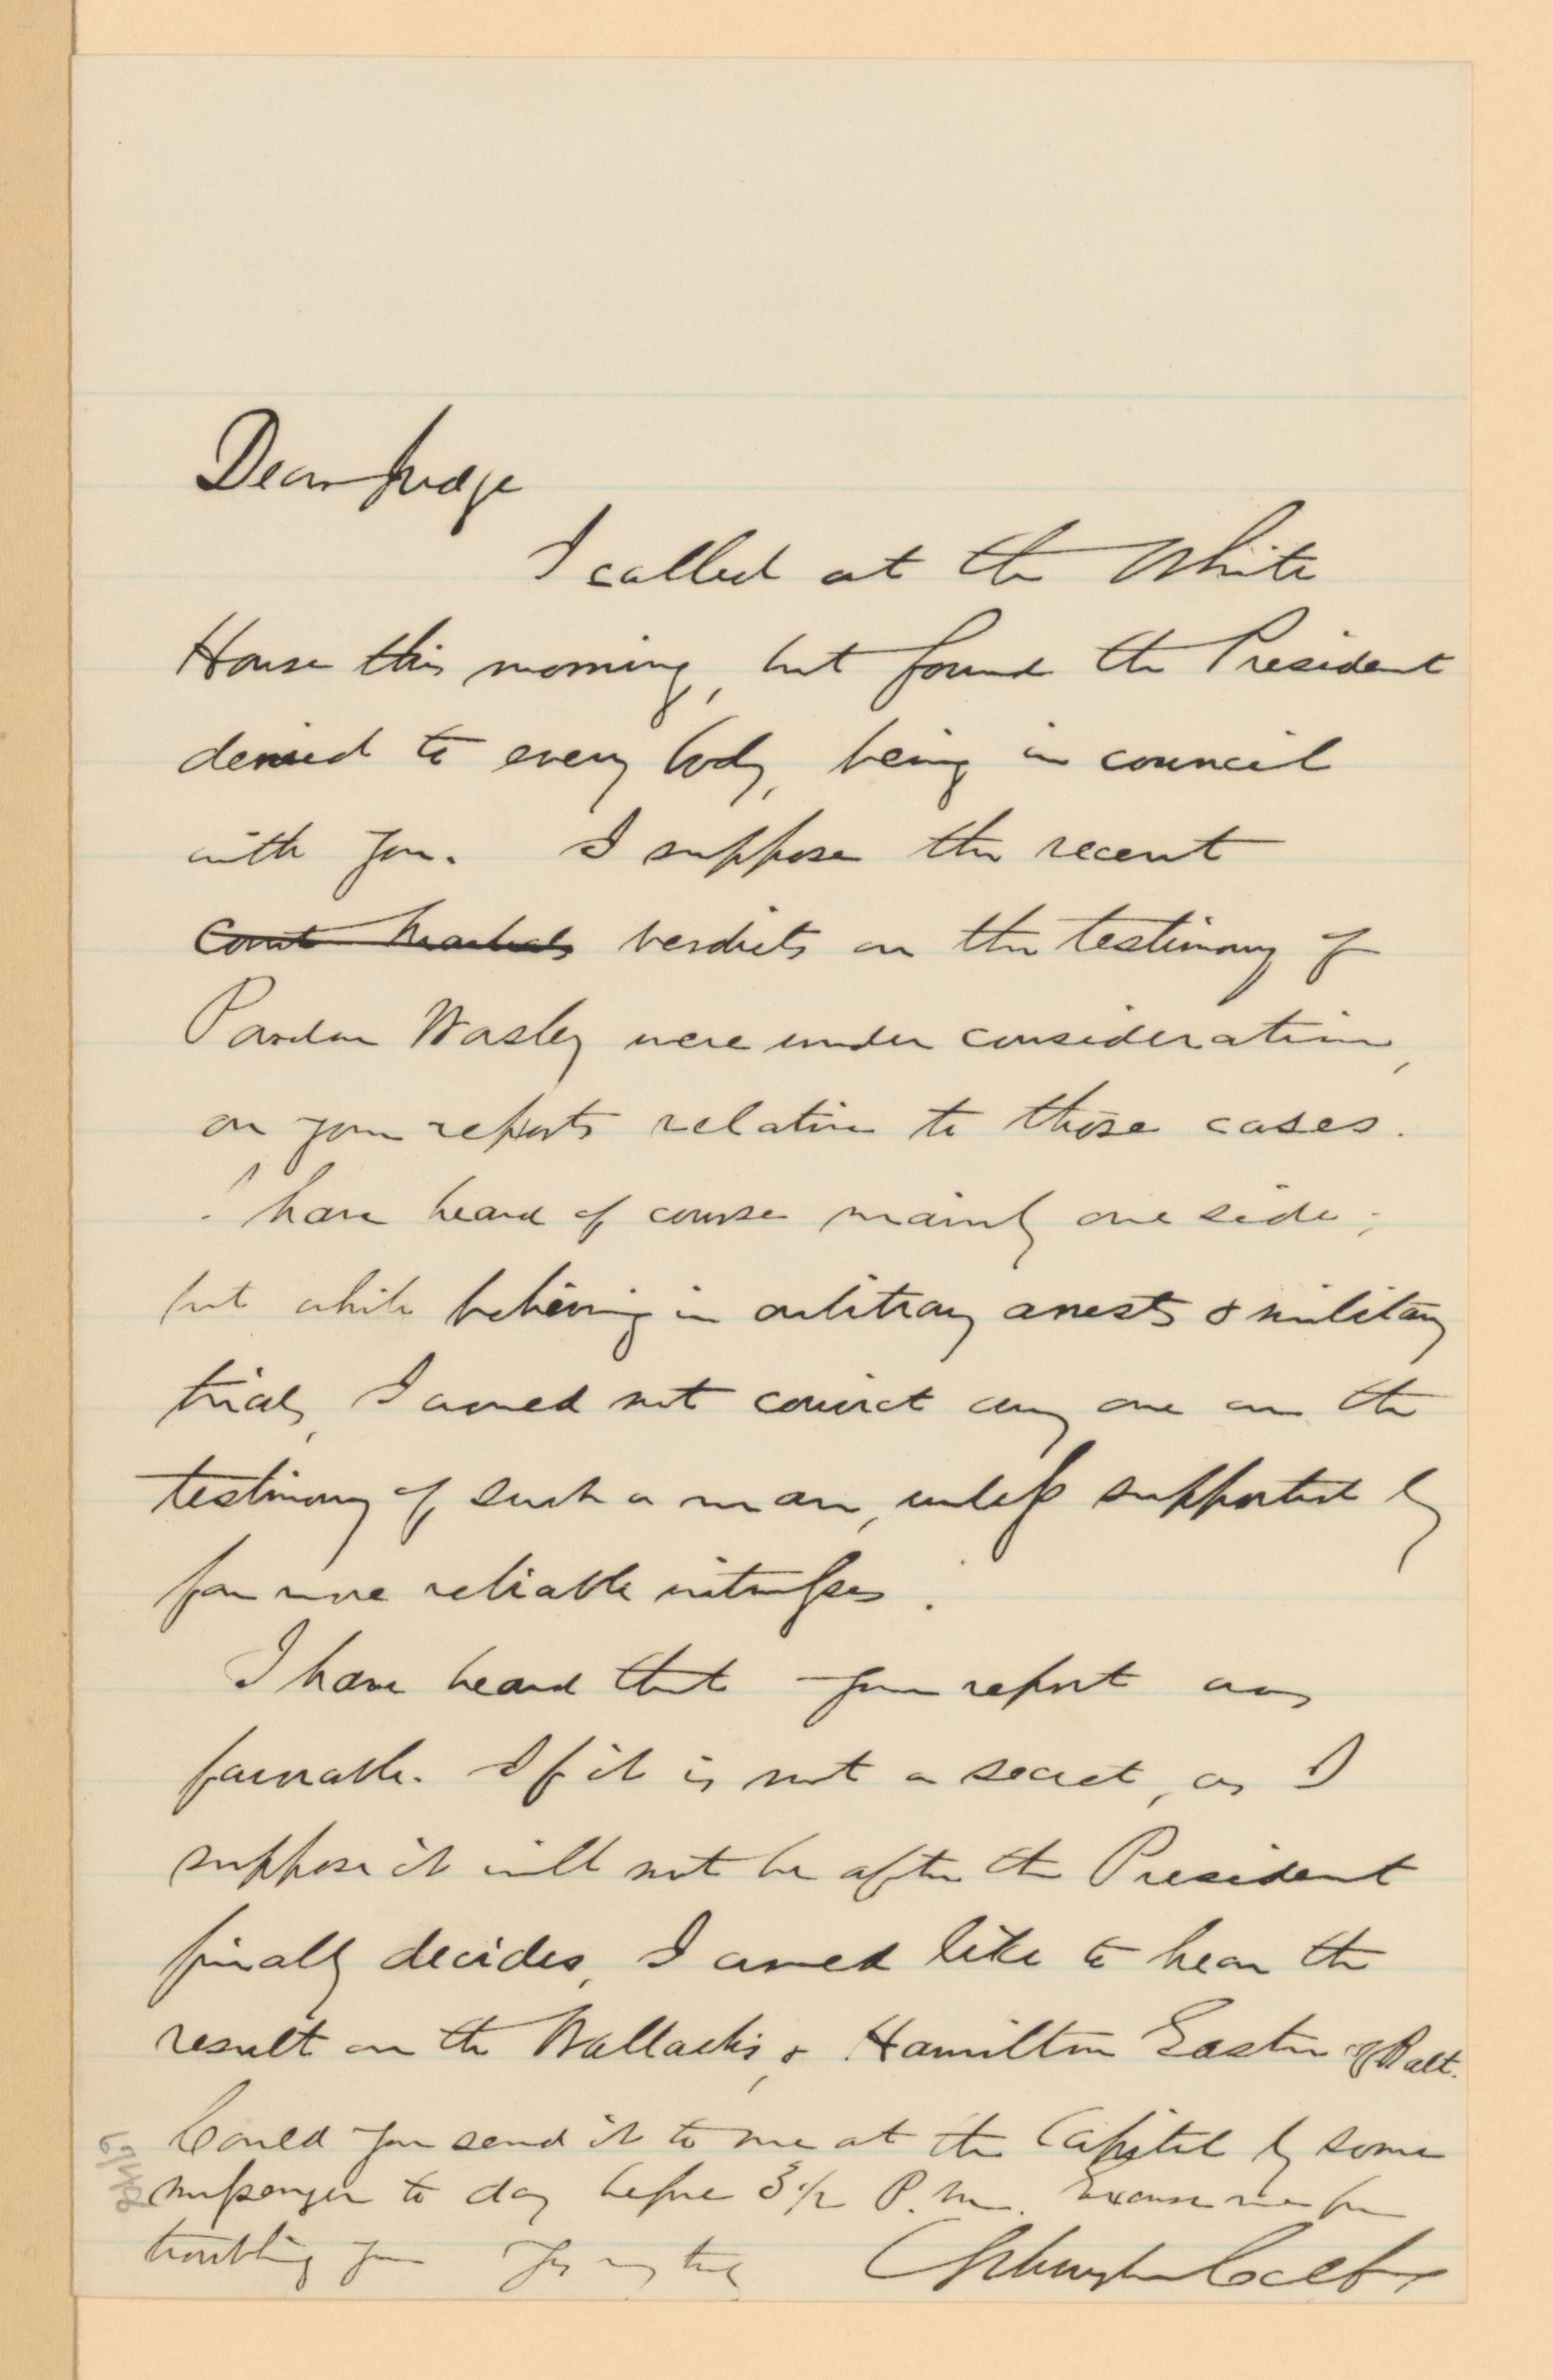 Dear Judge
I called at the White
House this morning, but found the President
denied to every body, being in council
with you. I suppose the recent
Court Martials verdicts on the testimony of
Pardon Wosley were under consideration,
on your reports relative to those cases.
I have heard of course mainly one side;
but while believing in arbitrary arrests & military
trials, I would not convict any one on the
testimony of such a man, unless supported by
far more reliable witnesses.
I have heard that your report was
favorable. If it is not a secret, as I
suppose it will not be after the President
finally decides, I would like to hear the
result on the Wallachs, & Hamilton Easter of Balt.
Could you send it to me at the Capitol by some
messenger to day before 3 1/2 P.M. Excuse me for
troubling you Yrs very truly Schuyler Colfax